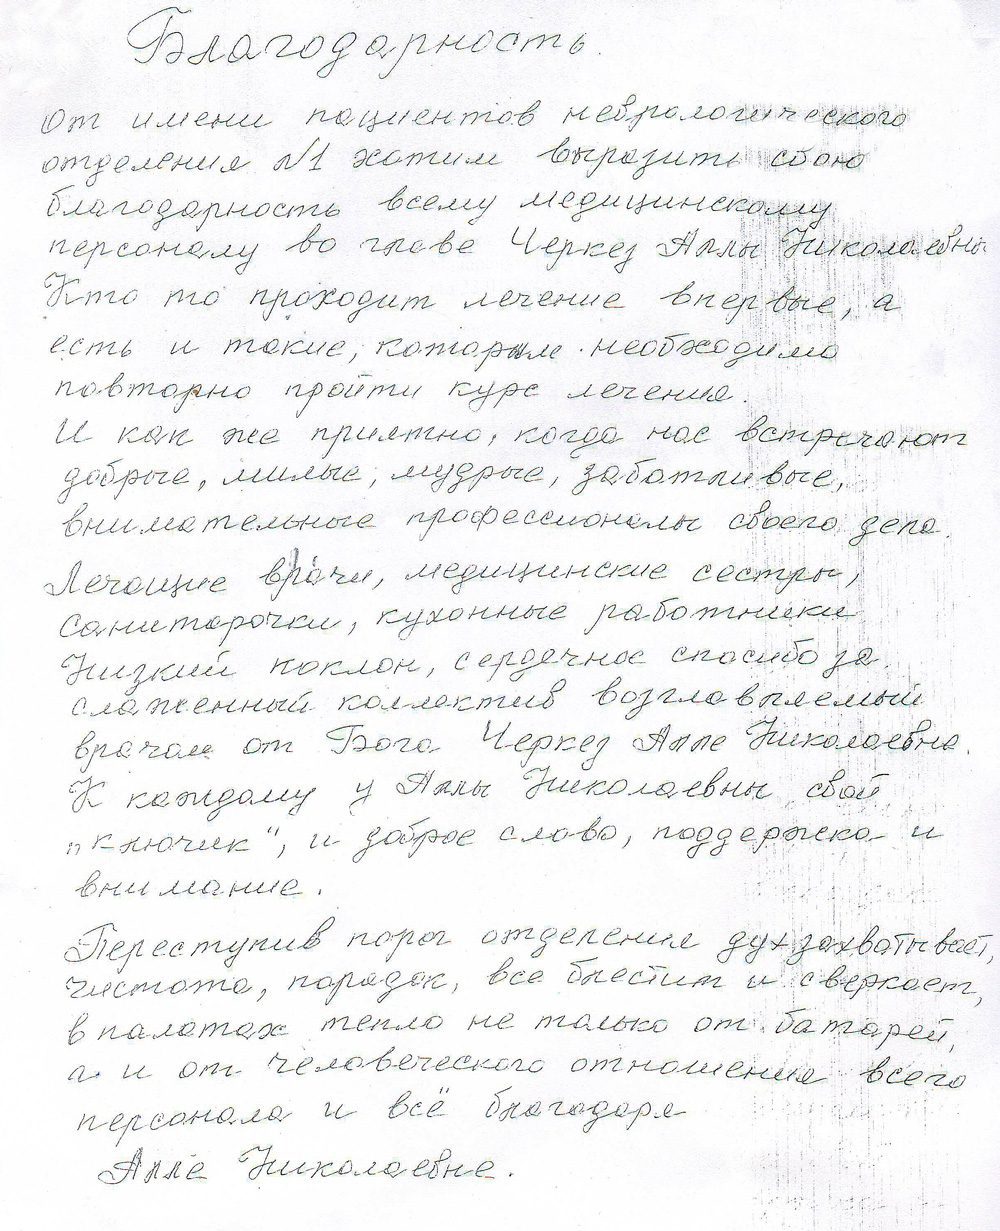 Благодарность.
От имени пациентов неврологического
отделения №1 хотим выразить свою
благодарность всему медицинскому
персоналу во главе Черкез Аллы Николаевны
Кто то проходит лечение впервые, а
есть и такие, которым необходимо
повторно пройти курс лечения.
И как же приятно, когда нас встречают
добрые, милые, мудрые, заботливые,
внимательные профессионалы своего дела.
Лечащие врачи, медицинские сестры,
санитарочки, кухонные работники
Низкий поклон, сердечное спасибо за
слаженный коллектив возглавляемый
врачом от Бога Черкез Алле Николаевне.
К каждому у Аллы Николаевны свой
„ключик", и доброе слово, поддержка и
внимание.
Переступив порог отделения дух захватывает,
чистота, порядок, все блестит и сверкает,
в палатах тепло не только от батарей,
а и от человеческого отношения всего
персонала и всё благодаря
Алле Николаевне.